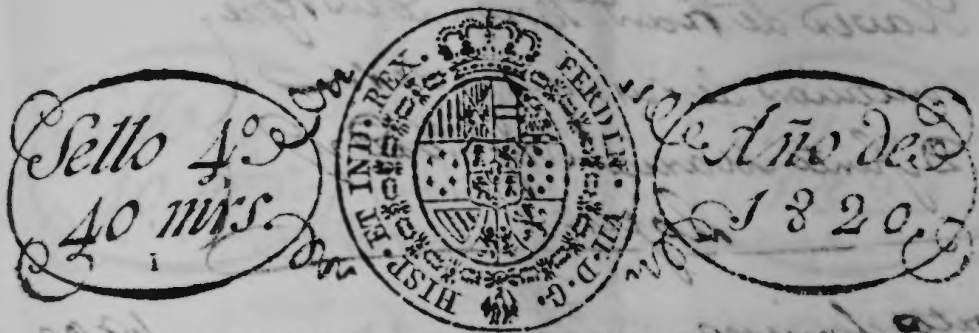 Sello 4º
40 mrs.
FERDIN. VII. D. G. HISP. ET IND. REX.
Año de
1820.